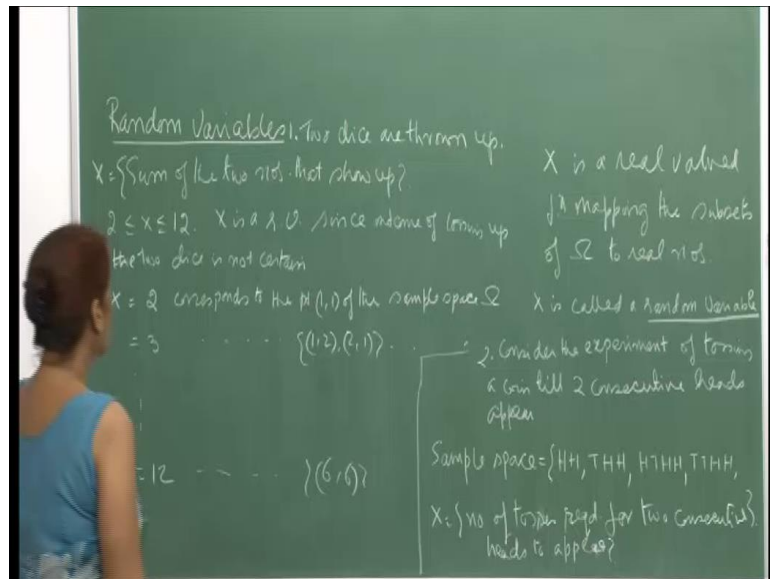 Random Variables 1. Two dice are thrown up.
X = {Sum of the two nos. that show up}.
2 ≤ X ≤ 12. X is a r.v. since outcome of tossing up
the two dice is not certain
X = 2 corresponds to the pt (1,1) of the sample space Ω
= 3 ..... {(1,2),(2,1)}. . .
= 12 ..... {(6,6)}
X is a real valued
fn mapping the subsets
of Ω to real nos.
X is called a random variable
2. Consider the experiment of tossing
a coin till 2 consecutive heads
appear
Sample space = {HH, THH, HTHH, TTHH,
X = {no of tosses reqd for two consecutive
heads to appear}